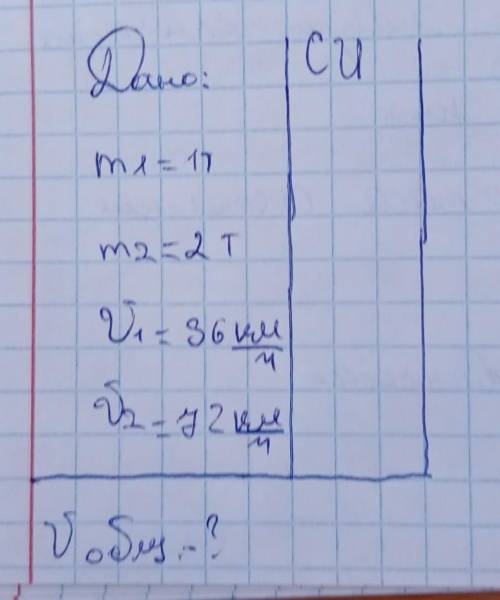 Дано: СИ
m1 = 1т
m2 = 2 т
V1 = 36 км/ч
V2 = 72 км/ч
Vобщ. - ?